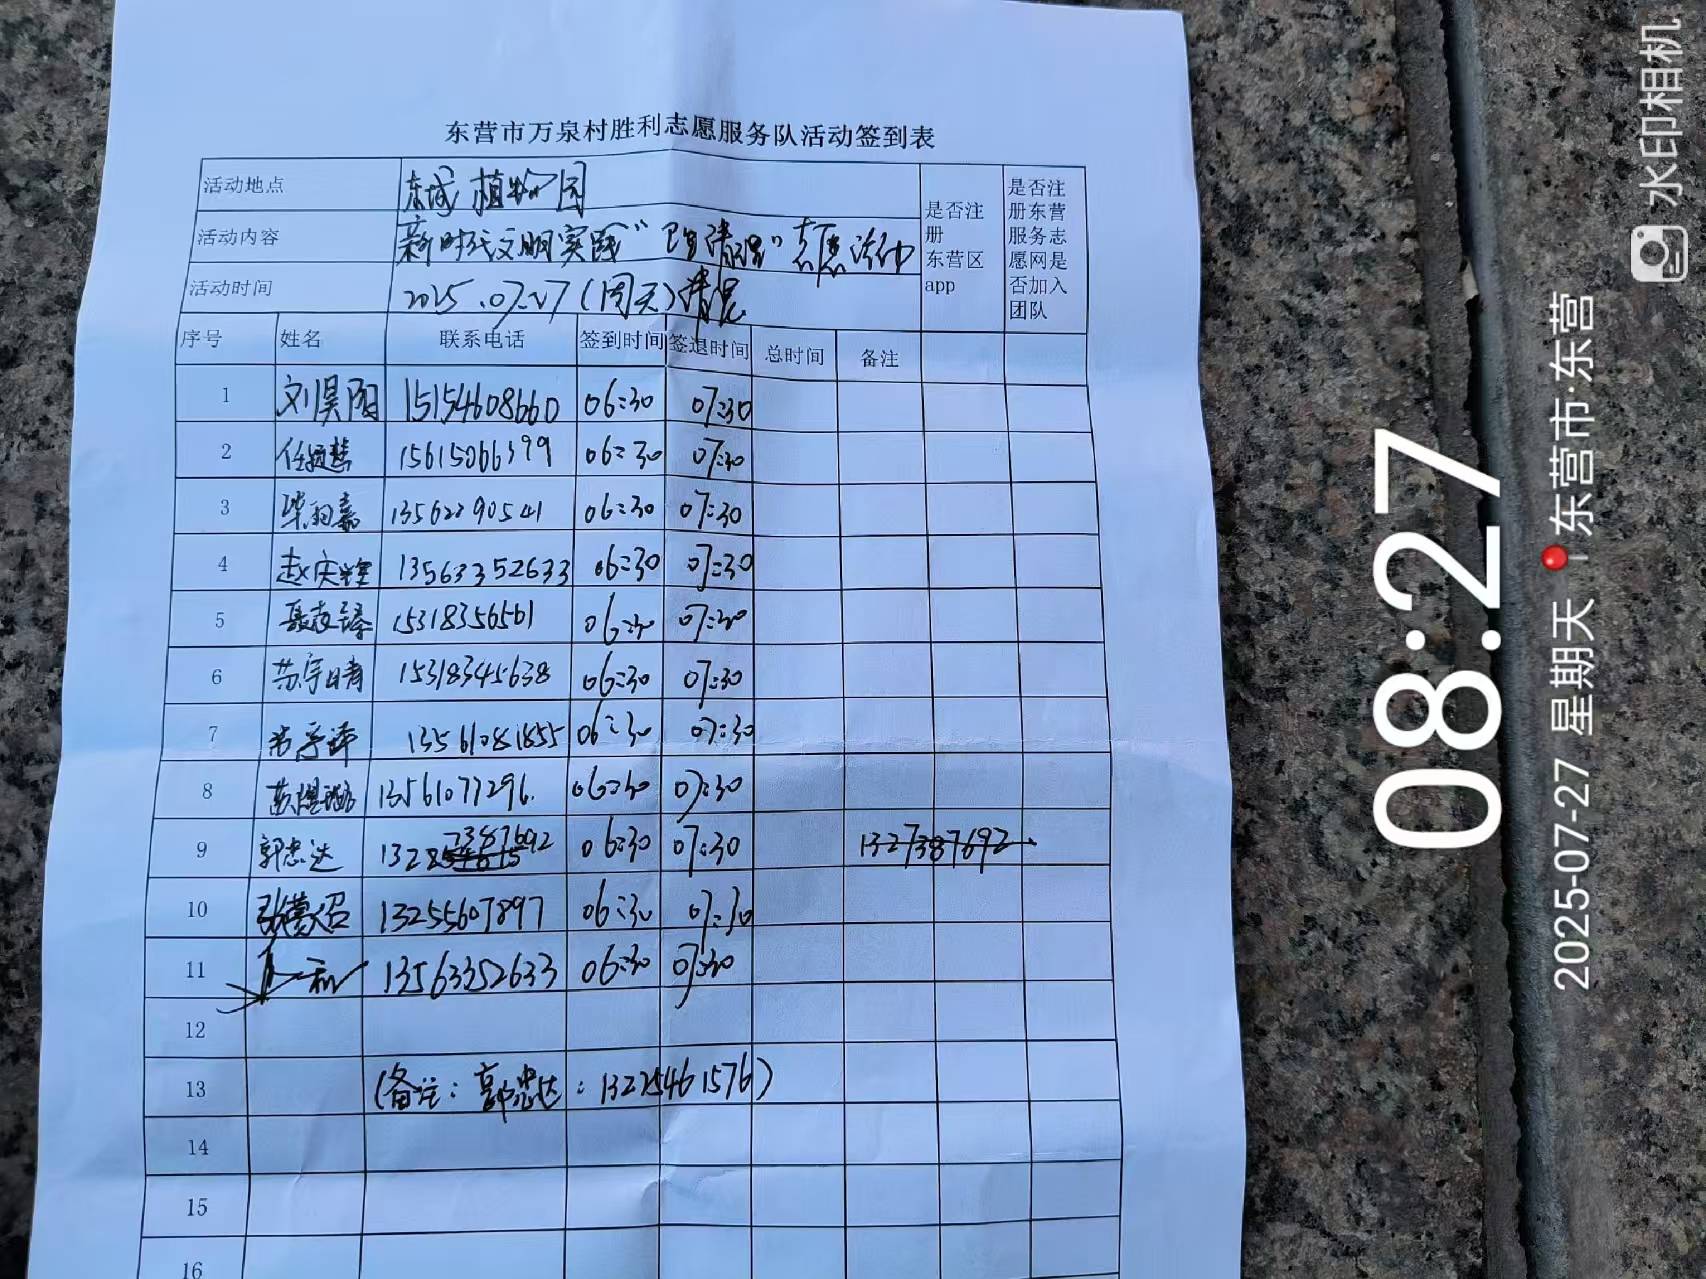 东营市万泉村胜利志愿服务队活动签到表
活动地点 东城植物园
活动内容 新时代文明实践“卫生清理”志愿活动
活动时间 2025.07.27（周天）清晨
是否注册东营区app
是否注册东营服务志愿网是否加入团队
序号 姓名 联系电话 签到时间 签退时间 总时间 备注
1 刘昊阳 15154608660 06:30 07:30
2 任 慧 15615066399 06:30 07:30
3 柴 嘉 06:30 07:30
4 赵庆 13563352633 06:30 07:30
5 15318356561 06:30 07:30
6 苏宇晴 15318345638 06:30 07:30
7 13561081855 06:30 07:30
8 13561077296. 06:30 07:30
9 郭志达 06:30 07:30 1327387692
10 张 13255607897 06:30 07:30
11 13563352633 06:30 07:30
12
13 (备注：郭忠达：13225461576)
14
15
16
水印相机
08:27
2025-07-27 星期天 东营市·东营